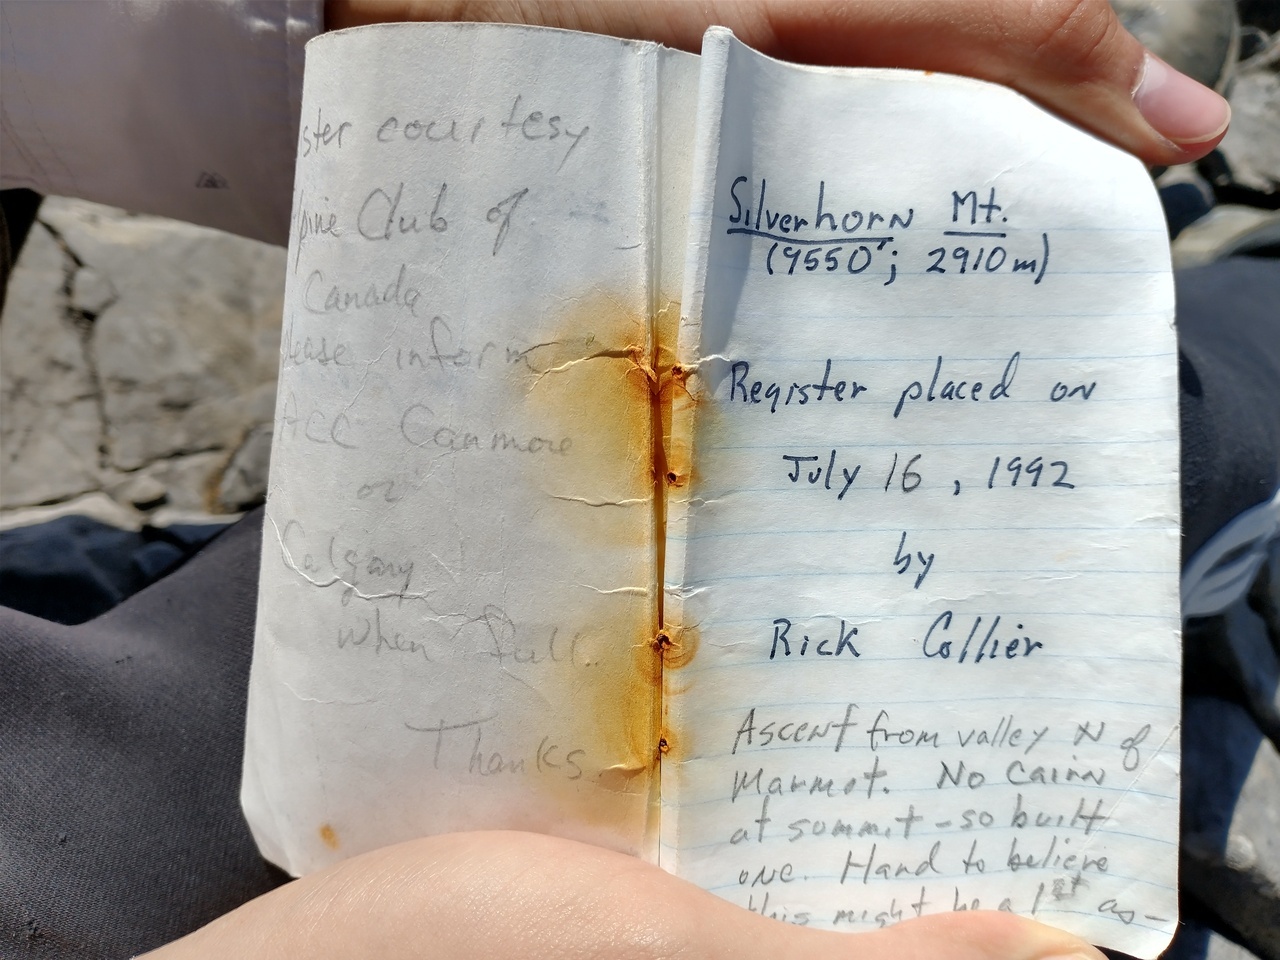 ster courtesy
pine Club of
Canada
lease inform
ACC Canmore
or
Calgary
when full.
Thanks.
Silverhorn Mt.
(9550'; 2910m)
Register placed on
July 16, 1992
by
Rick Collier
Ascent from valley N of
Marmot. No cairn
at summit - so built
one. Hard to believe
this might be a 1st as-